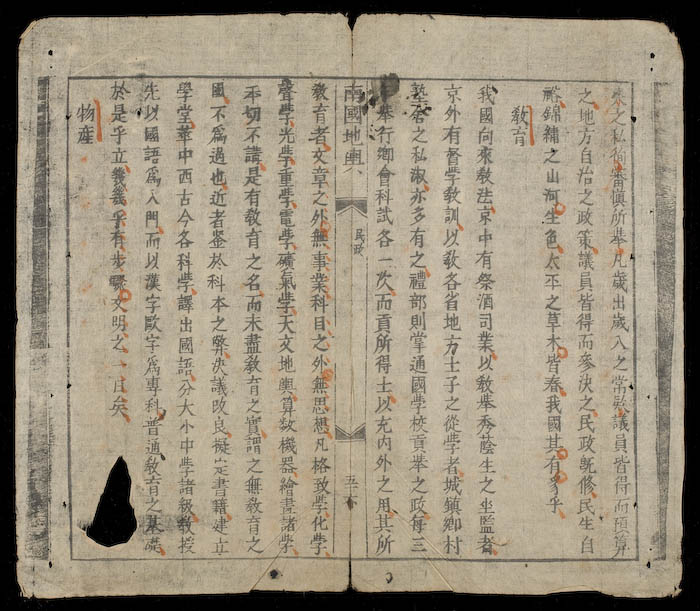 來之私偷審慎所舉凡歲出歲入之常款議員皆得而預算
之地方自治之政策議員皆得而參決之民政旣修民生自
裕錦繡之山河生色太平之草木皆春我國其有豸乎
教育
我國向來敎法京中有祭酒司業以敎舉秀蔭生之坐監者
京外有督學敎訓以敎各省地方士子之從學者城鎮鄉村
塾舍之私淑亦多有之禮部則掌通國學校貢舉之政每三
年舉行鄉會科試各一次而貢所得士以充內外之用其所
南國地輿 民政 五
敎育者文章之外無事業科目之外無思想凡格致學化學
聲學光學重學電學礦氣學天文地輿算數機器繪畫諸學
不切不講是有敎育之名而未盡敎育之實謂之無敎育之
國不爲過也近者鉴於科本之弊失議改良擬定書籍建立
學堂革中西古今各科學譯出國語分大小中學諸級敎授
先以國語爲入門而以漢字歐字爲專科普通敎育之基礎
於是乎立幾幾乎有步驟文明之一日矣
物產